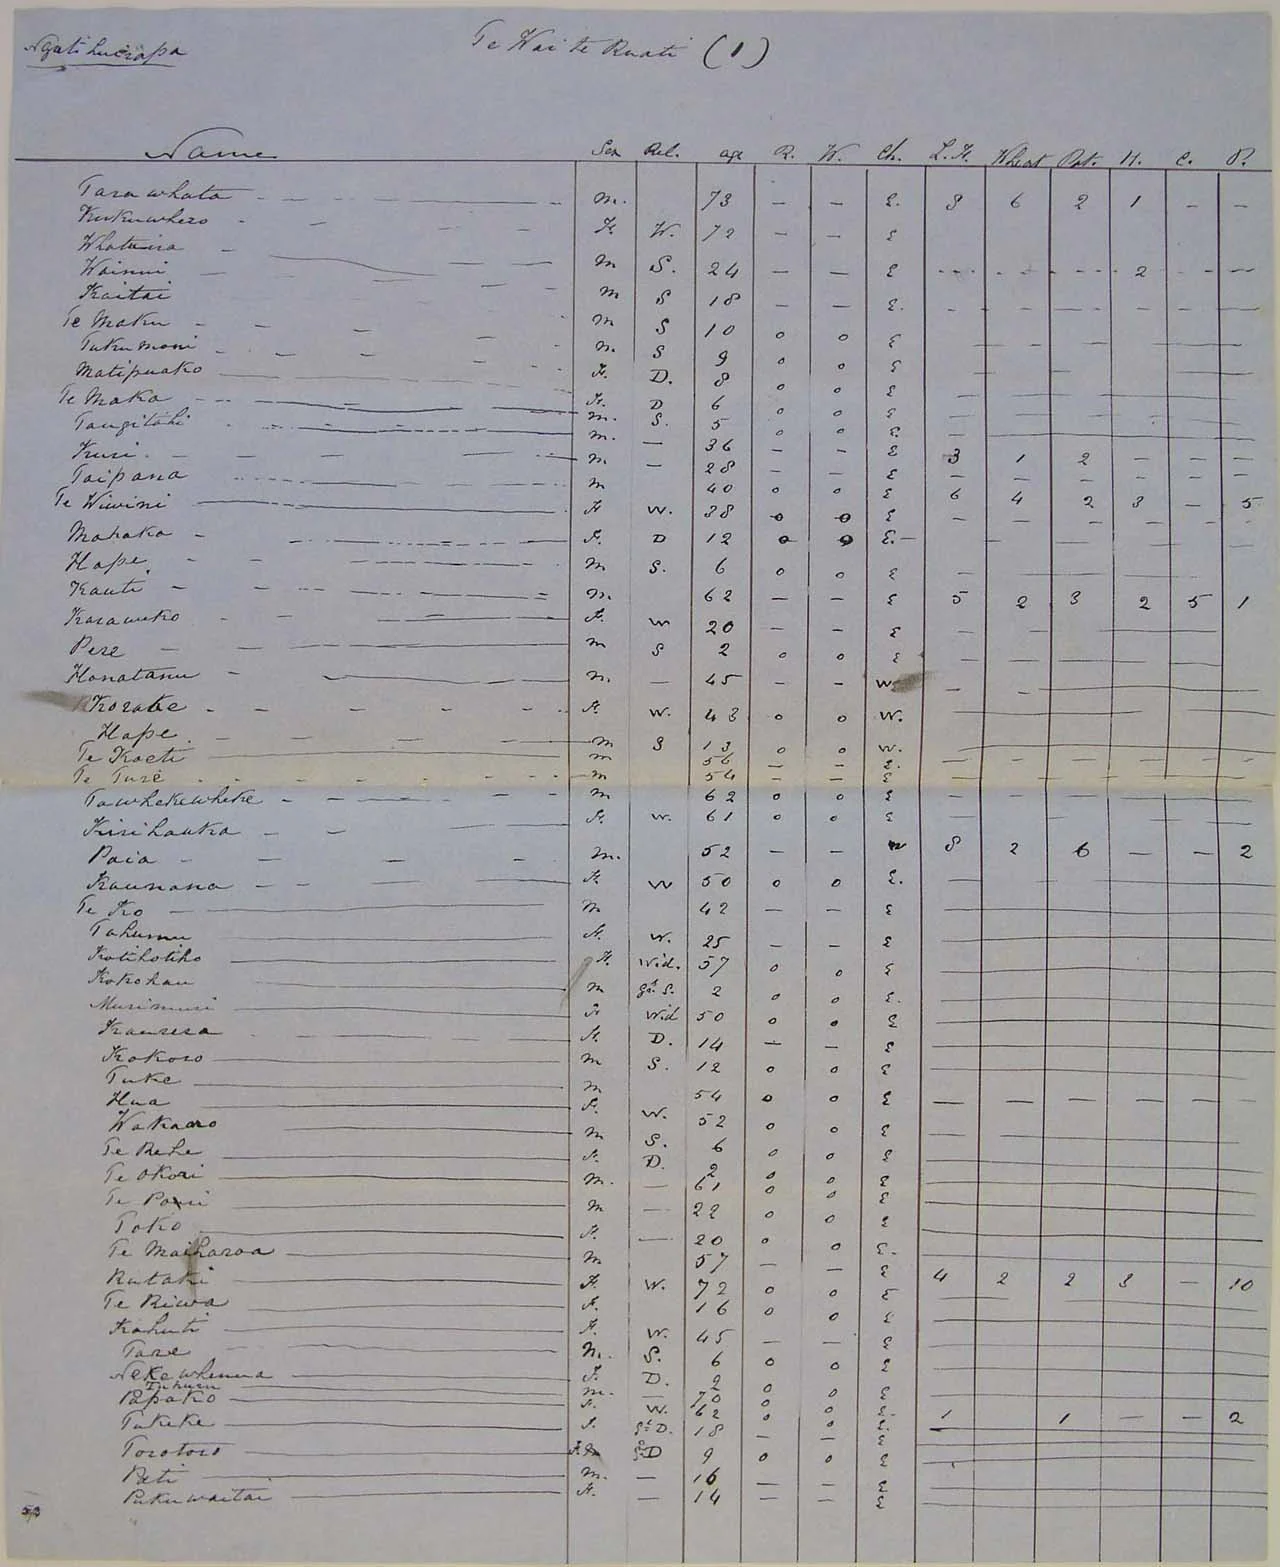 Ngati huirapa
Te Wai te Ruati (1)
Name Sex Rel. age R. W. Ch. L.F. Wheat Pot. H. C. P.
Tarawhata m. 73 — — E. 8 6 2 1 — —
Kukuwhero F. W. 72 — — E
Whatuira m S. 24 — — E - - - 2 - -
Wainui m S 18 — — E. — — — — — —
Kaitai m S 10 o o E
Te Maku m. S 9 o o E
Tukumoni F. D. 8 o o E
Matipuako F. D 6 o o E
Te Maka m. S. 5 o o E.
Taugitahi m. — 36 — — E 3 1 2 — — —
Kuri m — 28 — — E — — — — — —
Taipana m 40 o o E 6 4 2 3 — 5
Te Wiwini F W. 38 o o E
Mahaka F. D 12 o o E.
Hape m S. 6 o o E
Kauti m. 62 — — E 5 2 3 2 5 1
Karawuko F. W 20 — — E
Pere m S 2 o o E
Honatanu m. — 45 — — W.
Korake F. W. 43 o o W.
Hape m S 13 o o W.
Te Kaeti m 56 — — E.
Te Ture m 54 — — E
Tawhekewheke m 62 o o E
Kirihauka F. W. 61 o o E
Paia m. 52 — — W 8 2 6 — — 2
Kaunana F. W 50 o o E.
Te Ko m 42 — — E
Tahumu F. W. 25 — — E
Katihotiho F. Wid. 57 o o E
Kokohau m gd. S. 2 o o E.
Murimuri F Wid 50 o o E
Kaurera F. D. 14 — — E
Kokoro m S. 12 o o E
Tuke m 54 o o E — — — — — —
Hua F. W. 52 o o E
Wakaaro m S. 6 o o E
Te Rehe F. D. 2 o o E
Te Okori m. — 61 o o E
Te Pori m — 22 o o E
Toko F. — 20 o o E.
Te Maiharoa m 57 — — E 4 2 2 3 — 10
Rutaki F. W. 72 o o E
Te Riwa F. 16 o o E
Kahuti F. W. 45 — — E
Tare m. S. 6 o o E
Nekewhenua F. D. 2 o o E
Papako m. — 70 o o E. 1 1 — — 2
Takeke F. gd D. 18 — — E
Torotoro gd D 9 o o E
Pati m. — 16 — — E
Pukuwaitai F. — 14 — — E
53